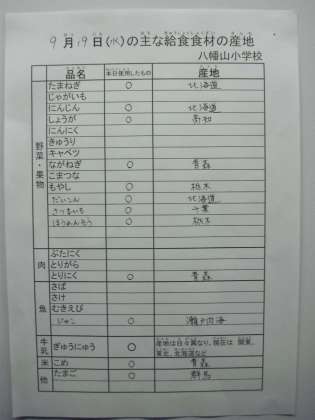 9月19日(水)の主な給食食材の産地
八幡山小学校
品名 本日使用したもの 産地
野菜・果物
たまねぎ ○ 北海道
じゃがいも
にんじん ○ 北海道
しょうが ○ 高知
にんにく
きゅうり
キャベツ
ながねぎ ○ 青森
こまつな
もやし ○ 栃木
だいこん ○ 北海道
さつまいも ○ 千葉
ほうれんそう ○ 栃木
肉
ぶたにく
とりがら
とりにく ○ 青森
魚
さば
さけ
むきえび
ジャコ ○ 瀬戸内海
牛乳 ぎゅうにゅう ○ 産地は日々異なり、現在は 関東、
東北、北海道など
米 こめ ○ 青森
他 たまご ○ 群馬